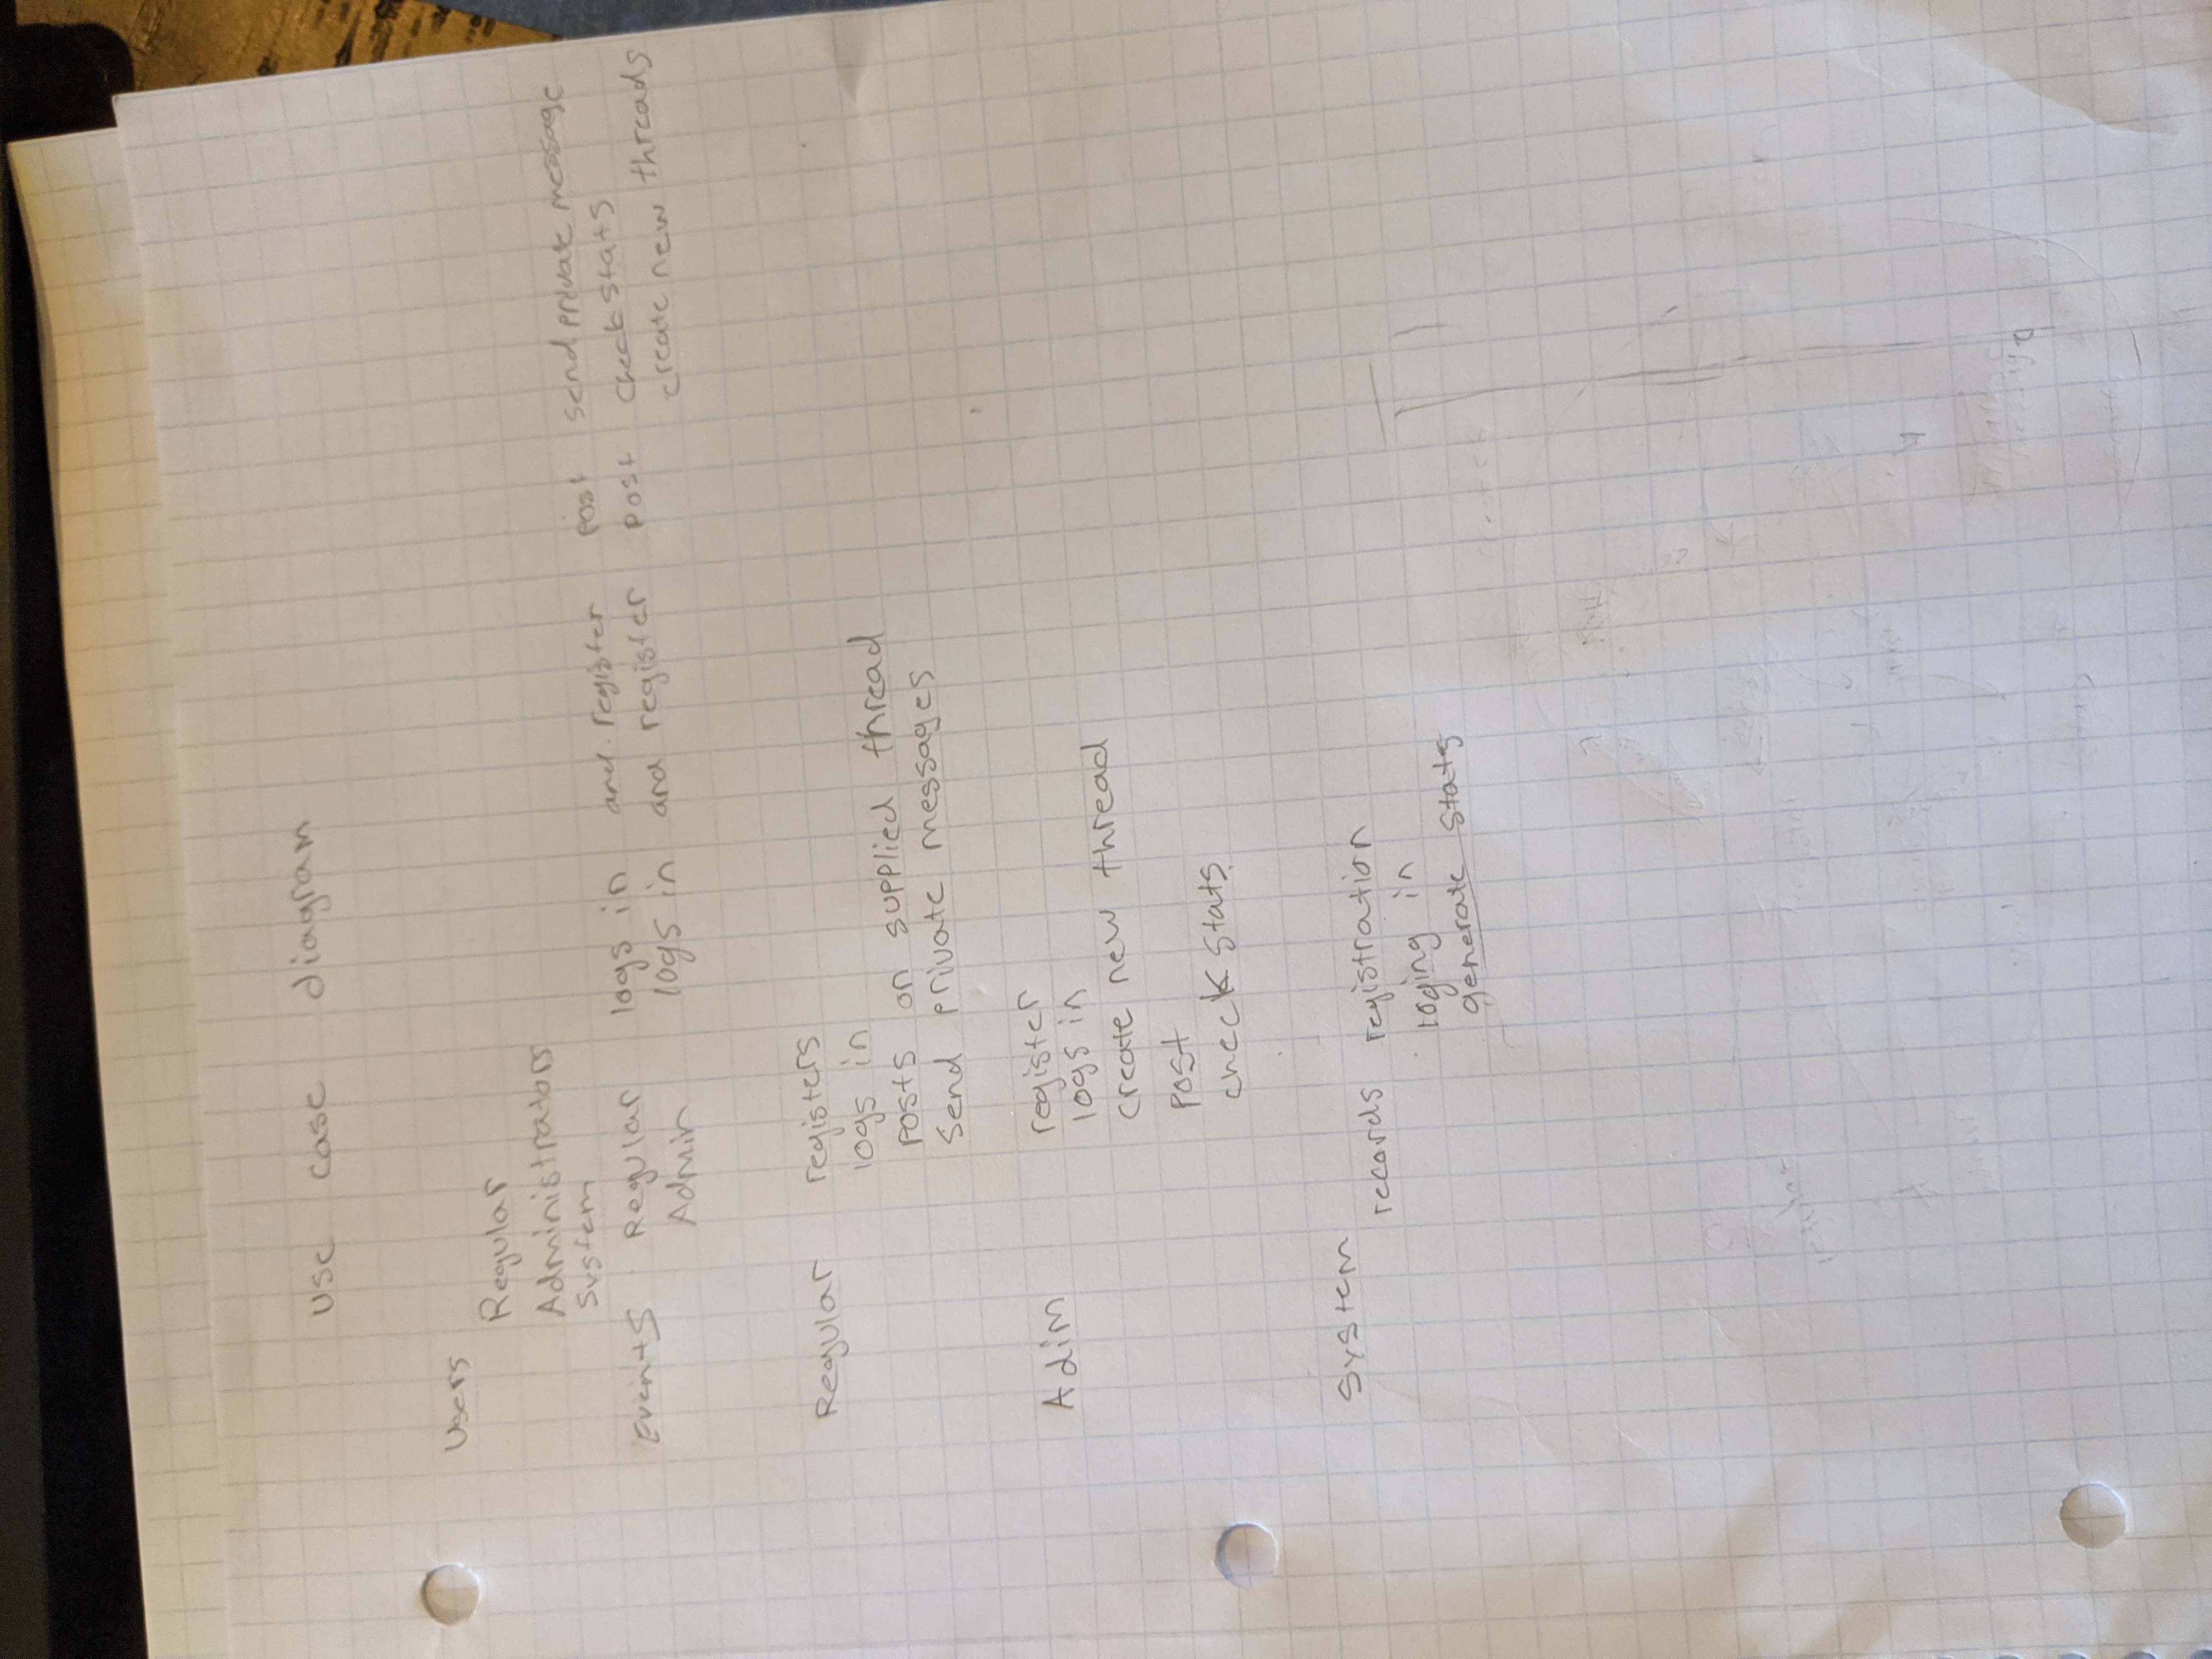 Use case diagram
Users
Regular
Administrators
System
Events Regular logs in and register post send private message
Admin logs in and register post check stats
create new threads
Regular registers
logs in
posts on supplied thread
Send private messages
Adim register
logs in
create new thread
post
check stats
System
records registration
loging in
generate stats
regular
message